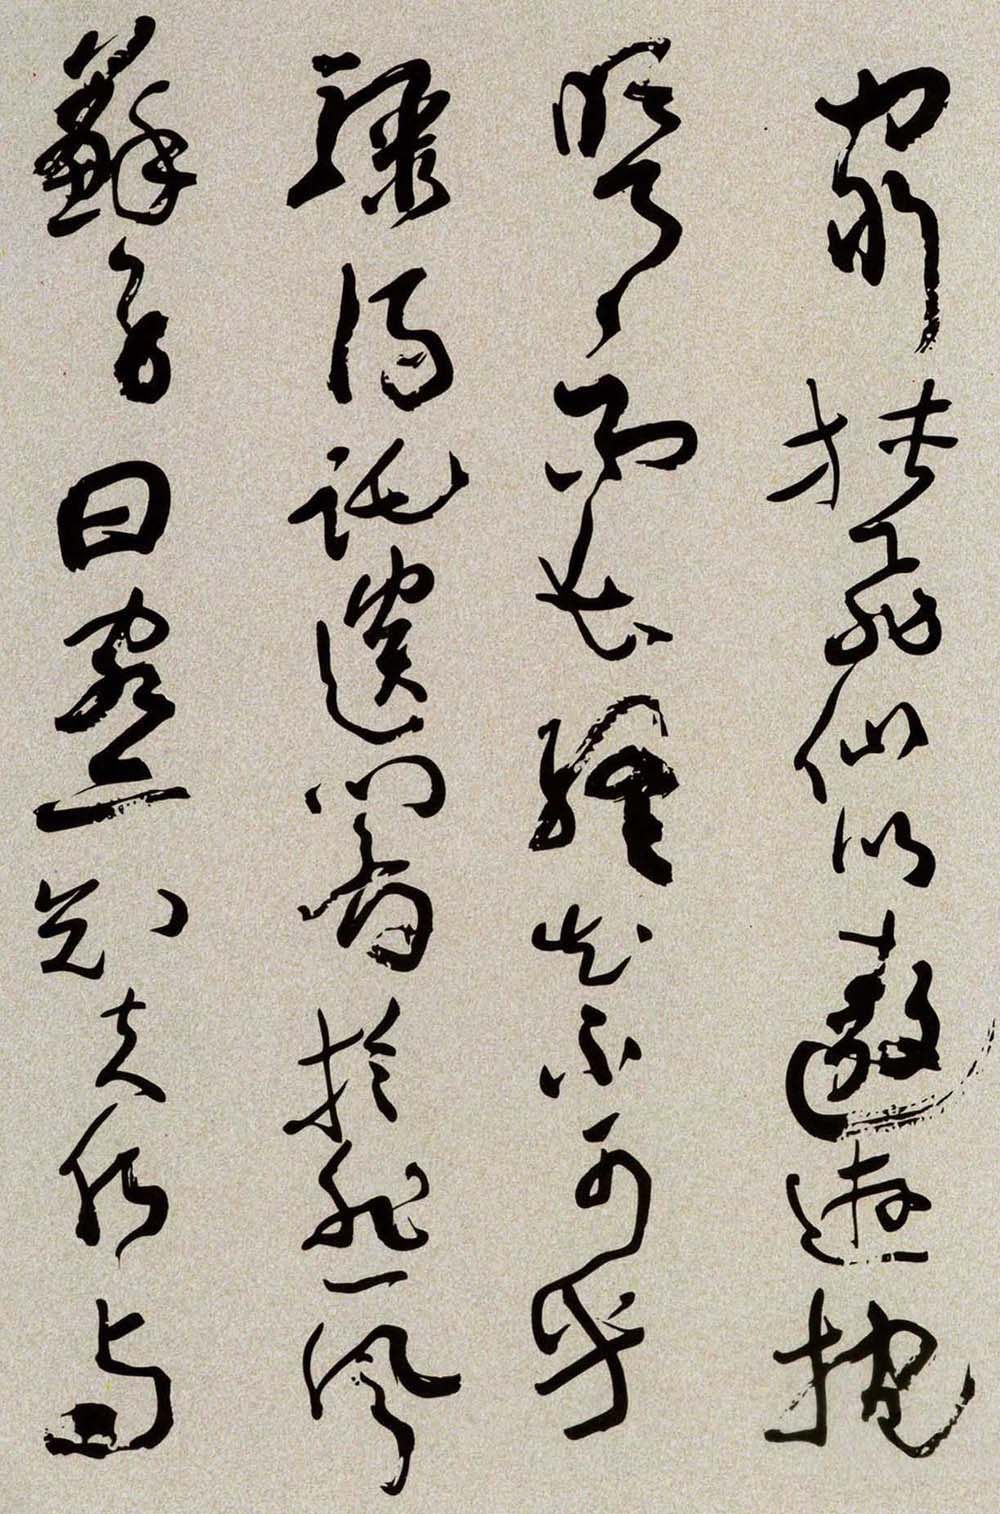 窮挾飛仙以遨遊抱
明月而長終知不可乎
驟得託遺響於悲風
蘇子曰客亦知夫水與